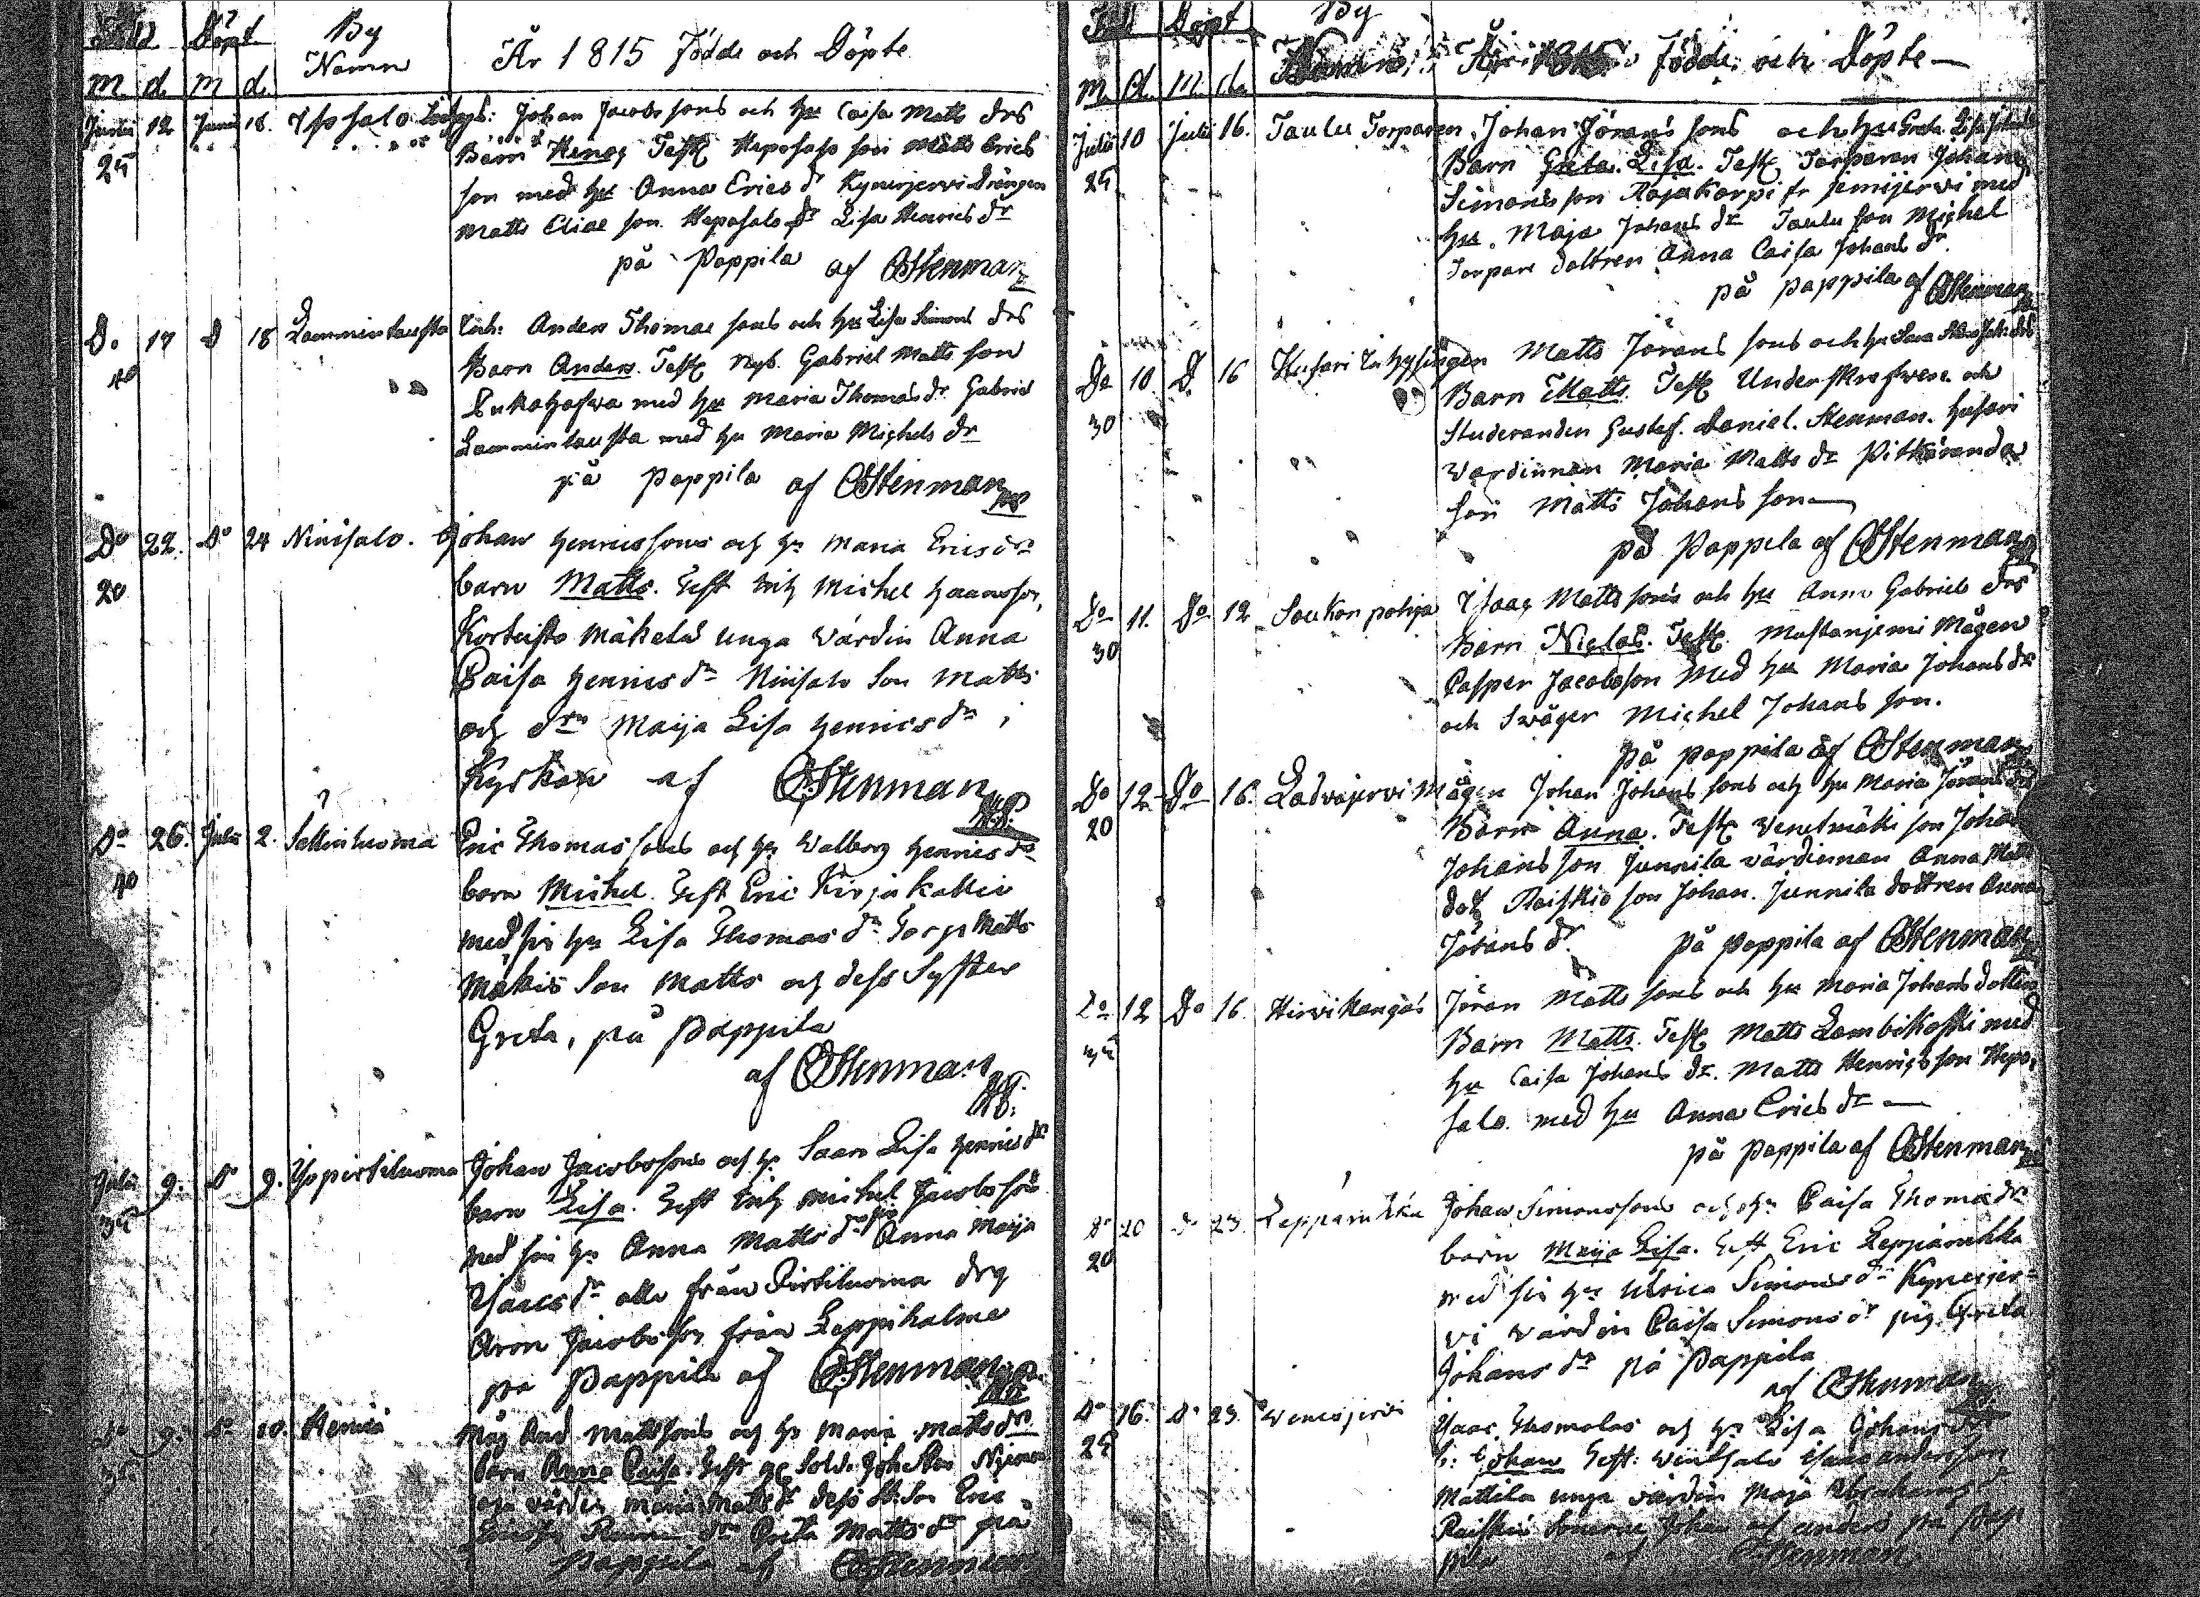 Född Döpt By
Namn År 1815 Födde och Döpte
m. d. m d.
Junii 12 Junii 18. Isosalo Johan Jacobs sons och hu Caisa Matts drs
25 Barn Henric Test Heposalo son Matts Erics
son med hu Anna Erics dr Kynerjervi Drängen
Matts Eliae son. Heposalo dr Lisa Henrics dr
på Pappila af CStenman
Do 17 D 18 Lamminlausta Inh: Anders Thomae sons och hu Lisa Simons drs
40 Barn Anders. Test Nyb. Gabriel Matts son
med hu Maria Thomas dr Gabriel
Lamminlausta med hu Maria Michels dr
på Pappila af CStenman
Do 22. Do 24 Niinisalo. Johan Henrics sons och hu Maria Erics drs
20 barn Matts. Test Inh Michel Hansson,
Mäkelä unga värdin Anna
Caisa Henrics dr Niinisalo Son Matts
och drn Maija Lisa Henrics dr i
Kyrkan af CStenman
Do 26. Julii 2. Eric Thomas sons och hu Walborg Henrics drs
40 barn Michel. Test Eric Kirjakallio
med sin hu Lisa Thomas dr Torp Matts
Mäkis Son Matts och dess Syster
Greta, på Pappila
af CStenman
Julii 9. D 9. Johan Jacobs sons och hu Saara Lisa Henrics drs
35 barn Lisa. Test Inh Michel Jacobs son
med sin hu Anna Matts dr Anna Maija
Isaacs dr alla från Pirttiluoma drg
Aron Jacobsson från Leppihalme
på Pappila af CStenman
Do 9. Do 10. måg And Mattssons och hu Maria Matts drs
35 barn Anna Caisa. Test Sold. Joh
värdin Maria Matts dr dess Son Eric
Greta Matts dr på
Pappila af CStenman
Född Döpt By
Namn År 1815 Födde och Döpte
M. d. M. d.
Julii 10 Julii 16. Taulu Torparen Johan Jörans sons och hu Greta Lisa Johans
25 Barn Greta Lisa. Test Torparen Johan
Simons son Rajakorpi fr Jämijervi med
hu. Maja Johans dr Taulu son Michel
Torpare dottren Anna Caisa Johans dr.
på Pappila af CStenman
Do 10. D. 16 Husari Inhysingen Matts Jörans sons och hu
30 Barn Matts. Test Underskrefwen och
Studeranden Gustaf. Daniel. Stenman. Husari
Wärdinnan Maria Matts dr Pitkäranda
son Matts Johans son
på Pappila af CStenman
Do 11. Do 12 Soukon pohja Isaac Matts sons och hu Anna Gabriels drs
30 Barn Niclas. Test. Mustanjemi Mågen
Casper Jacobsson Med hu Maria Johans dr
och Swåger Michel Johans son.
på Pappila af CStenman
Do 12 Do 16. Ladvajervi Mågen Johan Johans sons och hu Maria Jörans drs
20 Barn Anna. Test Wenesmäki son Johan
Johans son Junnila värdinnan Anna Matts
dot. Raiskio son Johan. Junnila dottren Anna
Johans dr. På Pappila af CStenman
Do 12 Do 16. Hirvikangas Jöran Matts sons och hu Maria Johans dotters
35 Barn Matts. Test Matts Lambikoski med
hu Caisa Johans dr. Matts Henrics son Hepo-
salo med hu Anna Erics dr
på Pappila af CStenman
D 20 D 23. Leppärukka Johan Simons sons och hu Caisa Thomae drs
20 barn Maija Lisa. Test Eric Leppärukka
med sin hu Ulrica Simons dr Kynerjer-
vi värdin Caisa Simons dr pig. Greta
Johans dr på Pappila
af CStenman
D 16. D 23. Wenesjervi Isaac Thomas och hu Lisa Johans drs
25 b: Johan Test: Isaac Andersson
Mattila unga värdin Maja Abrahams dr
Raiskio Sönerne Johan och Anders på Pap
pila af CStenman